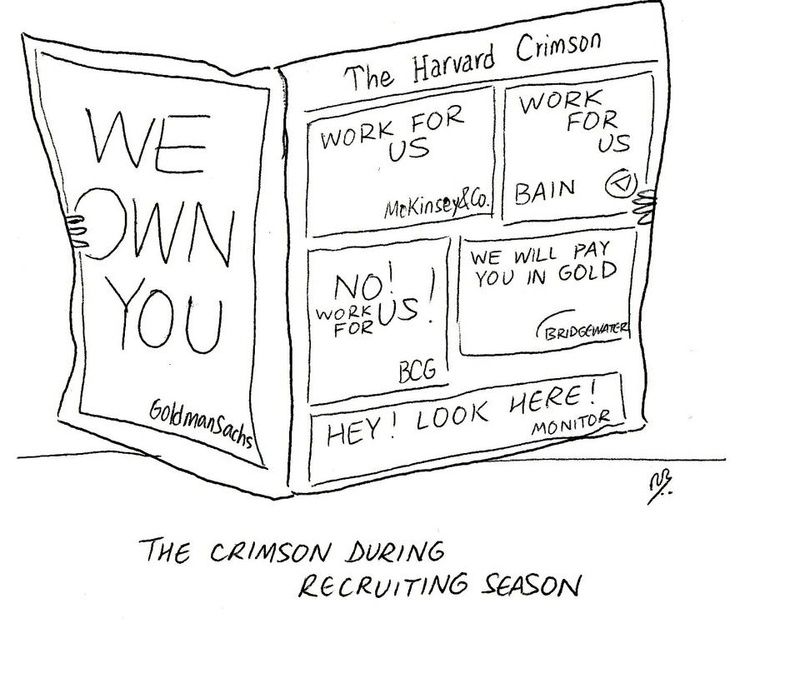 WE
OWN
YOU
GoldmanSachs
The Harvard Crimson
WORK FOR
US
McKinsey&Co.
WORK
FOR
US
BAIN
NO!
WORK
FOR US!
BCG
WE WILL PAY
YOU IN GOLD
BRIDGEWATER
HEY! LOOK HERE!
MONITOR
THE CRIMSON DURING
RECRUITING SEASON